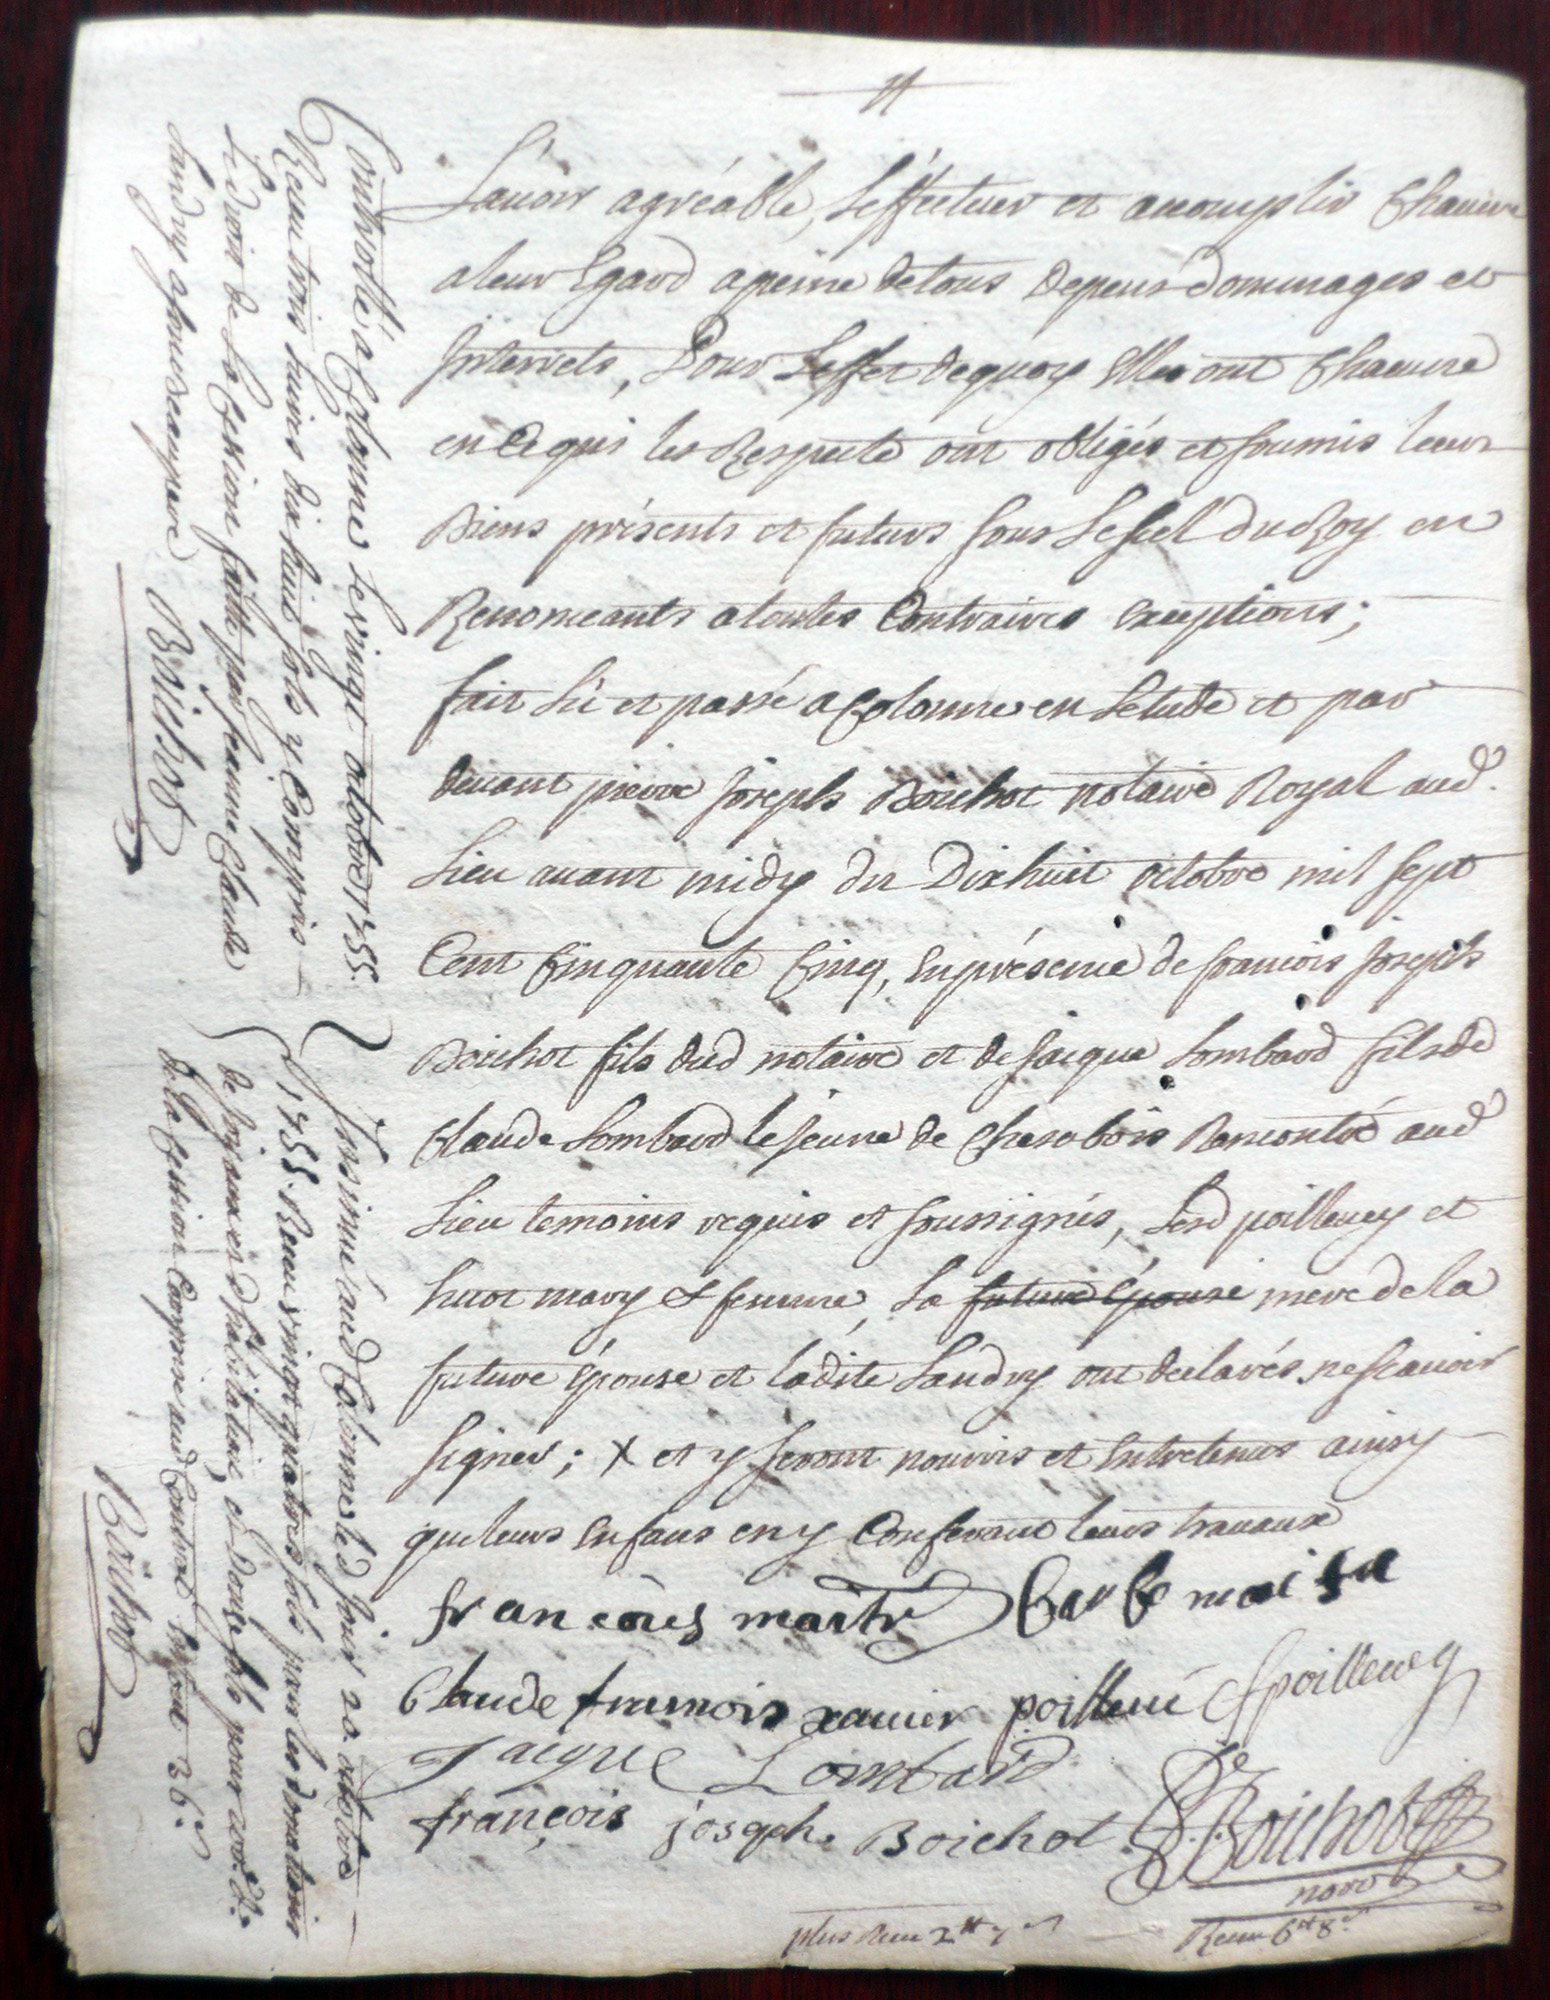 L'auoir agréable, L'effectuer et acomplir Chacune
a leur Egard a peine de tous depens dommages et
Interrets, Pour L'effet de quoy Elles ont Chacune
en Ce qui les Respecte ont obligés et soumis leurs
Biens présents et futurs sous Le scel du Roy en
Renonceants a toutes Contraires exceptions;
fait Lû et passé a Colonne en L'etude et par
deuant pierre Joseph Boichot notaire Royal aud.
Lieu auant midy du Dixhuit octobre mil sept
Cent Cinquante Cinq, En présence de francois Joseph
Boichot fils dud notaire et de Jacque Lombard fils de
Claude Lombard le Jeune de Rencontré aud
Lieu temoins requis et soussignés, Lesd poilleuey et
huot mary & femme, La future Epouse mere de la
future Epouse et ladite Landry ont declarés ne scauoir
signer; X et y seront nouris et Entretenus ainsy
que leurs Enfans en y Conferant leurs trauaux
francois maitre
Claude francois xauier poilleué CF poilleuey
Jacque Lombard
françois joseph Boichot P. J. Boichot
plus Receu 2
Receu 6 8
Controllé a Colonne Le vingt octobre 1755.
Receu trois Liures dix huit sols y Compris
Le droit de La Cession faitte par Jeanne Claude
Landry a beaupere Boichot
Insinué aud Colonne led Jour 20. octobre
1755. Receu vingt quatre sols pour les donations
et d'habitation, et Douze sols pour
de la Cession Comprise aud Contrat
Boichot